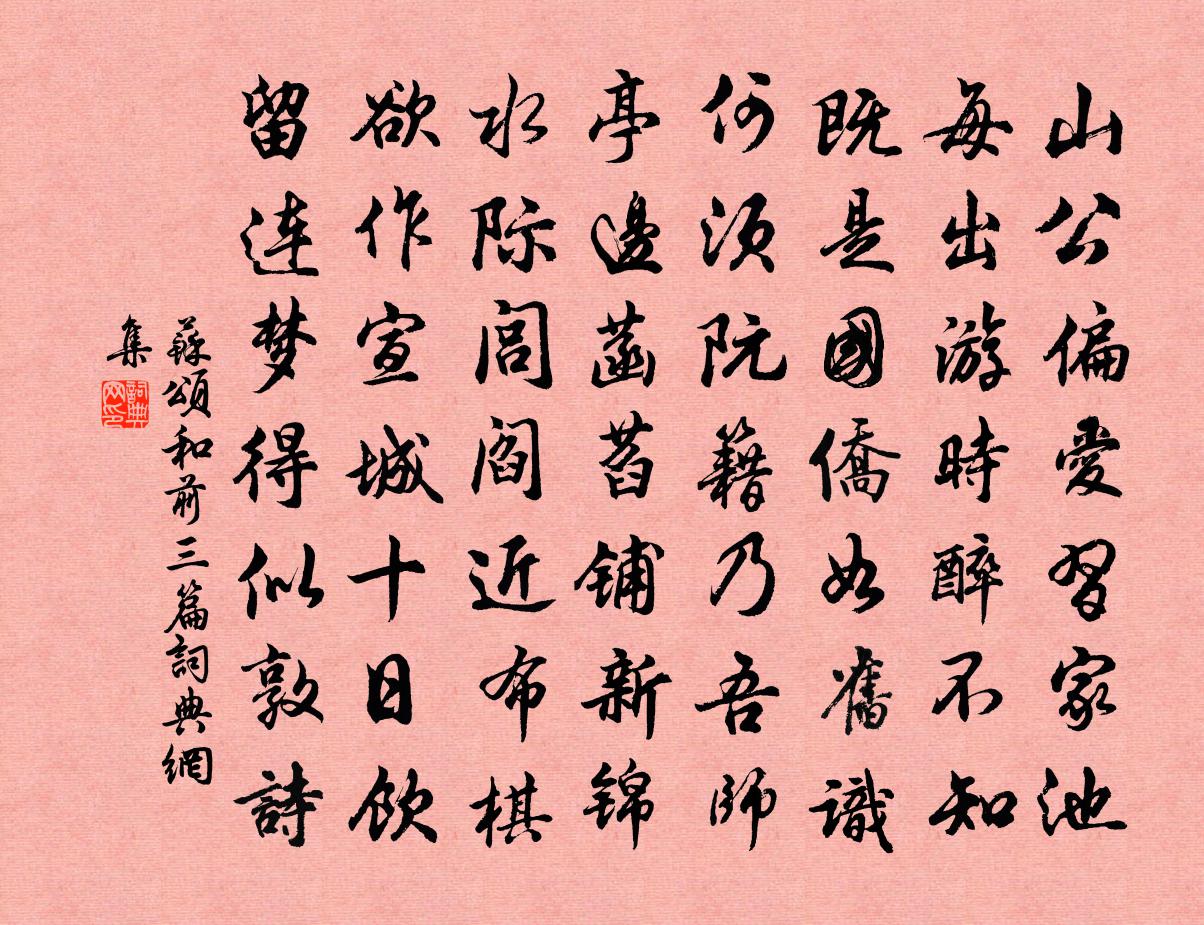 山公偏愛習家池
每出游時醉不知
既是國僑如舊識
何須阮籍乃吾師
亭邊菡萏鋪新錦
水际閭阎近布棋
欲作宣城十日飲
留连梦得似敦詩
蘇頌和前三篇詞典網
集
詞典网印